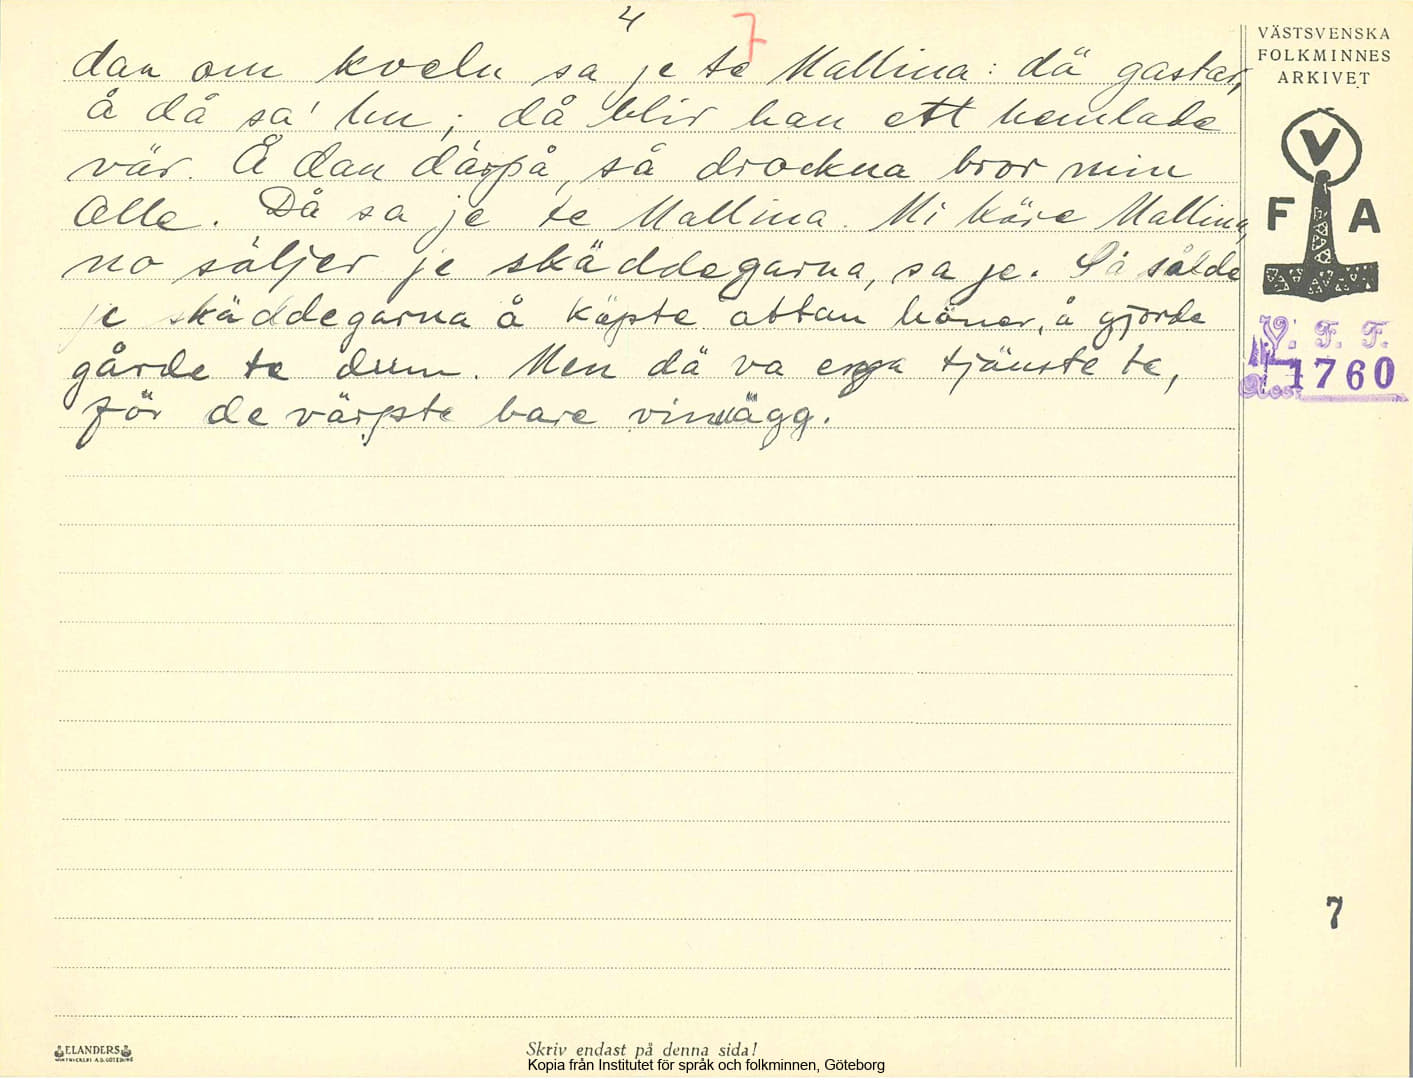 4
7
dan om kveln sa je te Mallina: dä gastar,
å då sa' hu; då blir han ett hemlade
vär. Å dan därpå, så drockna bror min
Olle. Då sa je te Mallina. Mi käre Mallina,
no säljer je skäddegarna, sa je. Så sålde
je skäddegarna å köpte åttan höner, å gjorde
gårde te dum. Men dä va enga tjänste te,
för de värpte bare vindägg.
VÄSTSVENSKA
FOLKMINNES
ARKIVET
V
F A
V. F. F.
1760
7
ELANDERS
Skriv endast på denna sida!
Kopia från Institutet för språk och folkminnen, Göteborg